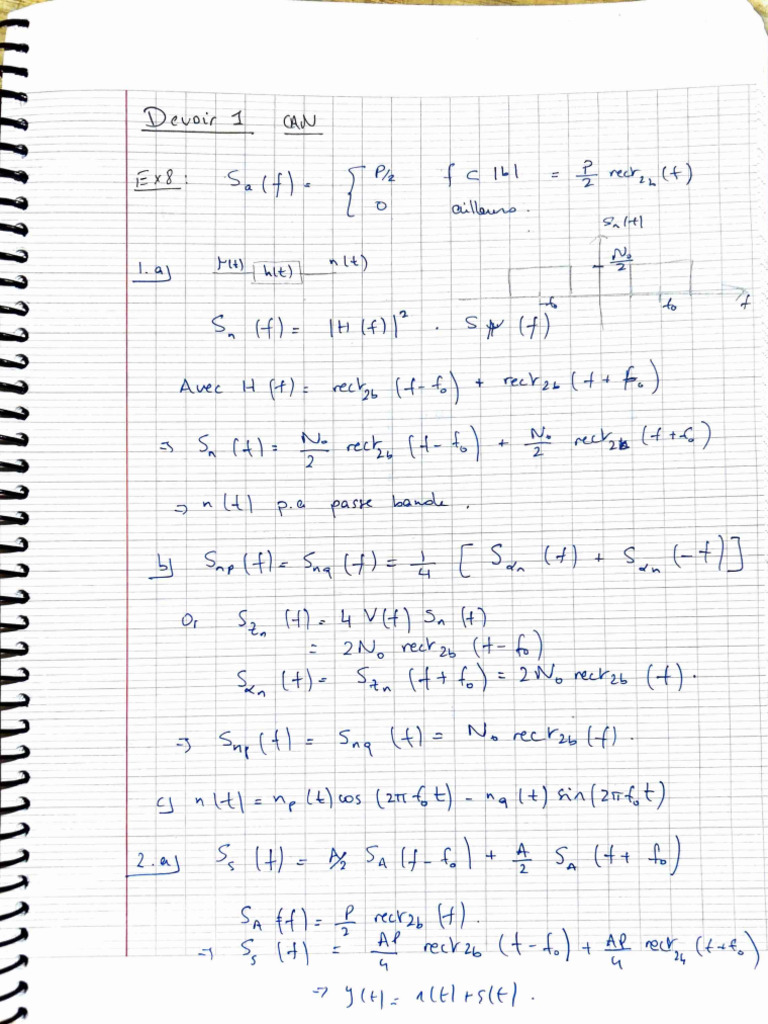 Devoir 1 CAN
Ex8: Sa(f) = { P/2 f ⊂ |b| = P/2 rect2b(f)
0 ailleurs.
Sn(f)
N0/2
-f0 f0 f
1.a) h(t) n(t)
Sn(f) = |H(f)|² . Sμ(f)
Avec H(f) = rect2b(f-f0) + rect2b(f+f0)
⇒ Sn(f) = N0/2 rect2b(f-f0) + N0/2 rect2b(f+f0)
⇒ n(t) p.a passe bande.
b) Snp(f) = Snq(f) = 1/4 [Sαn(f) + Sαn(-f)]
Or Szn(f) = 4 V(f) Sn(f)
= 2N0 rect2b(f-f0)
Sαn(f) = Szn(f+f0) = 2N0 rect2b(f).
⇒ Snp(f) = Snq(f) = N0 rect2b(f).
c) n(t) = np(t) cos(2πf0t) - nq(t) sin(2πf0t)
2.a) Ss(f) = A/2 SA(f-f0) + A/2 SA(f+f0)
SA(f) = P/2 rect2b(f).
⇒ Ss(f) = AP/4 rect2b(f-f0) + AP/4 rect2b(f+f0)
⇒ y(t) = n(t)+s(t).